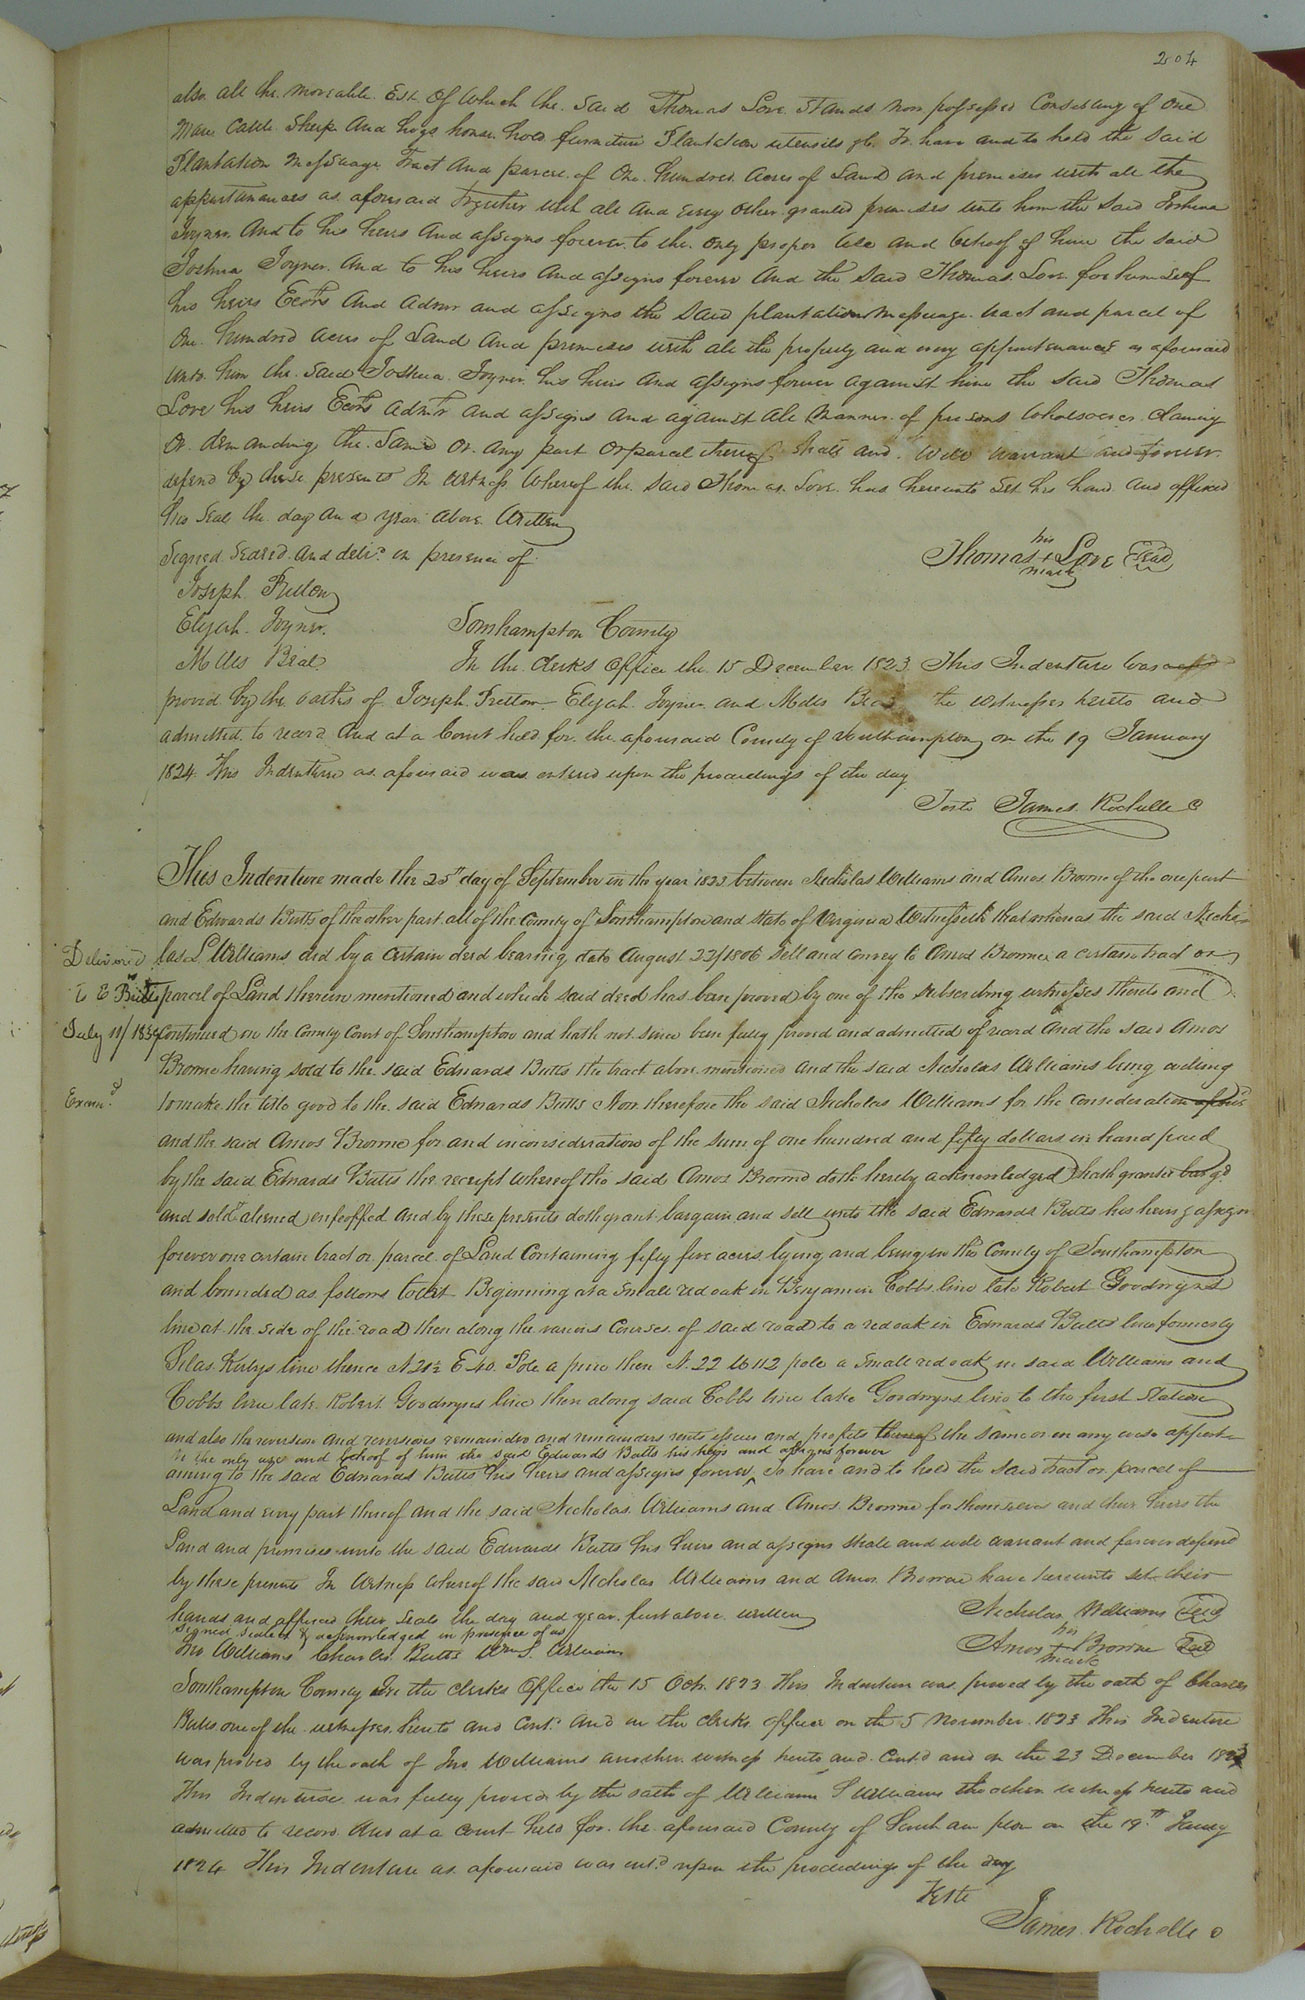 204
also all the moveable Est. of which the said Thomas Love stands now possessed Consisting of One
Mare Cattle Sheep And hogs house hold furniture Plantation utensils &c. To have and to hold the said
Plantation Messuage Tract And parcel of One hundred Acres of Land and premises with all the
appurtunances as aforesaid Together with all And every other granted premises unto him the said Joshua
Joyner And to his heirs And assigns forever to the only proper Use and behoof of him the said
Joshua Joyner And to his heirs And assigns forever And the said Thomas Love for himself
his heirs Ecors And Admrs and assigns the said plantation Messuage tract and parcel of
One hundred acres of Land And premises with all the property and every appurtenances as aforesaid
Unto him the said Joshua Joyner his heirs And assigns forever against him the said Thomas
Love his heirs Ecors Admrs and assigns And against All Manner of persons Whatsoever Claiming
Or demanding the Same Or Any part Or parcel thereof shall and Will Warrant and forever
defend by these presents In witness Whereof the said Thomas Love has hereunto set his hand And affixed
his Seal the day And year Above Written
Signed Sealed And delivd in presence of
Thomas his + mark Love Seal
Joseph Fretlow
Elijah Joyner
Southampton County
Mills Beal
In the Clerks Office the 15 December 1823 This Indenture was
proved by the oaths of Joseph Fretlow Elijah Joyner and Mills Beal the witnesses hereto and
admitted to record And at a Court held for the aforesaid County of Southampton on the 19 January
1824 This Indenture as aforesaid was entered upon the proceedings of the day
Teste James Rochelle C
This Indenture made the 25th day of September in the year 1823 between Nicholas Williams and Amos Browne of the one part
and Edwards Butts of the other part all of the County of Southampton and state of Virginia Witnesseth that whereas the said Nicho-
Delivered
las L Williams did by a certain deed bearing date August 22/1806 sell and convey to Amos Browne a certain tract or
to E Butts
parcel of Land therein mentioned and which said deed has been proved by one of the subscribing witnesses thereto and
July 11/
continued in the County Court of Southampton and hath not since been fully proved and admitted of record And the said Amos
Browne having sold to the said Edwards Butts the tract above mentioned and the said Nicholas Williams being willing
Examd
to make the title good to the said Edwards Butts Now therefore the said Nicholas Williams for the consideration
and the said Amos Browne for and in consideration of the sum of one hundred and fifty dollars in hand paid
by the said Edwards Butts the receipt whereof the said Amos Browne doth hereby acknowledged hath granted bargd
and sold aliened enfeoffed and by these presents doth grant bargain and sell unto the said Edwards Butts his heirs & assigns
forever one certain tract or parcel of Land Containing fifty five acres lying and being in the County of Southampton
and bounded as follows towit Beginning at a small red oak in Benjamin Cobbs line late Robert Goodwyns
line at the side of the road then along the various Courses of said road to a red oak in Edwards Butts line formerly
Silas Kirbys line thence N 21½ E 40 Pole a pine then N. 22 W 112 pole a small red oak in said Williams and
Cobbs line late Robert Goodwyns line then along said Cobbs line late Goodwyns line to the first station
and also the reversion and reversions remainder and remainders rents issues and profits thereof the same or in any wise appert-
to the only use and behoof of him the said Edwards Butts his heirs and assigns forever
aining to the said Edwards Butts his heirs and assigns forever ^ To have and to hold the said tract or parcel of
Land and every part thereof and the said Nicholas Williams and Amos Browne for themselves and their heirs the
Land and premises unto the said Edwards Butts his heirs and assigns shall and will warrant and forever defend
by these presents In Witness whereof the said Nicholas Williams and Amos Browne have hereunto set their
hands and affixed their seals the day and year first above written
Nicholas Williams Seal
Signed sealed & acknowledged in presence of us
Jno Williams Charles Butts Wm S. Williams
Amos his + mark Browne Seal
Southampton County In the Clerks Office the 15 Octr 1823 This Indenture was proved by the oath of Charles
Butts one of the witnesses hereto and Contd And in the Clerks office on the 5 November 1823 This Indenture
was proved by the oath of Jno Williams another witness hereto and Contd and on the 23 December 1823
This Indenture was fully proved by the oath of William S Williams the other witness hereto and
admitted to record And at a court held for the aforesaid County of Southampton on the 19th Jany
1824 This Indenture as aforesaid was entd upon the proceedings of the day
Teste
James Rochelle C